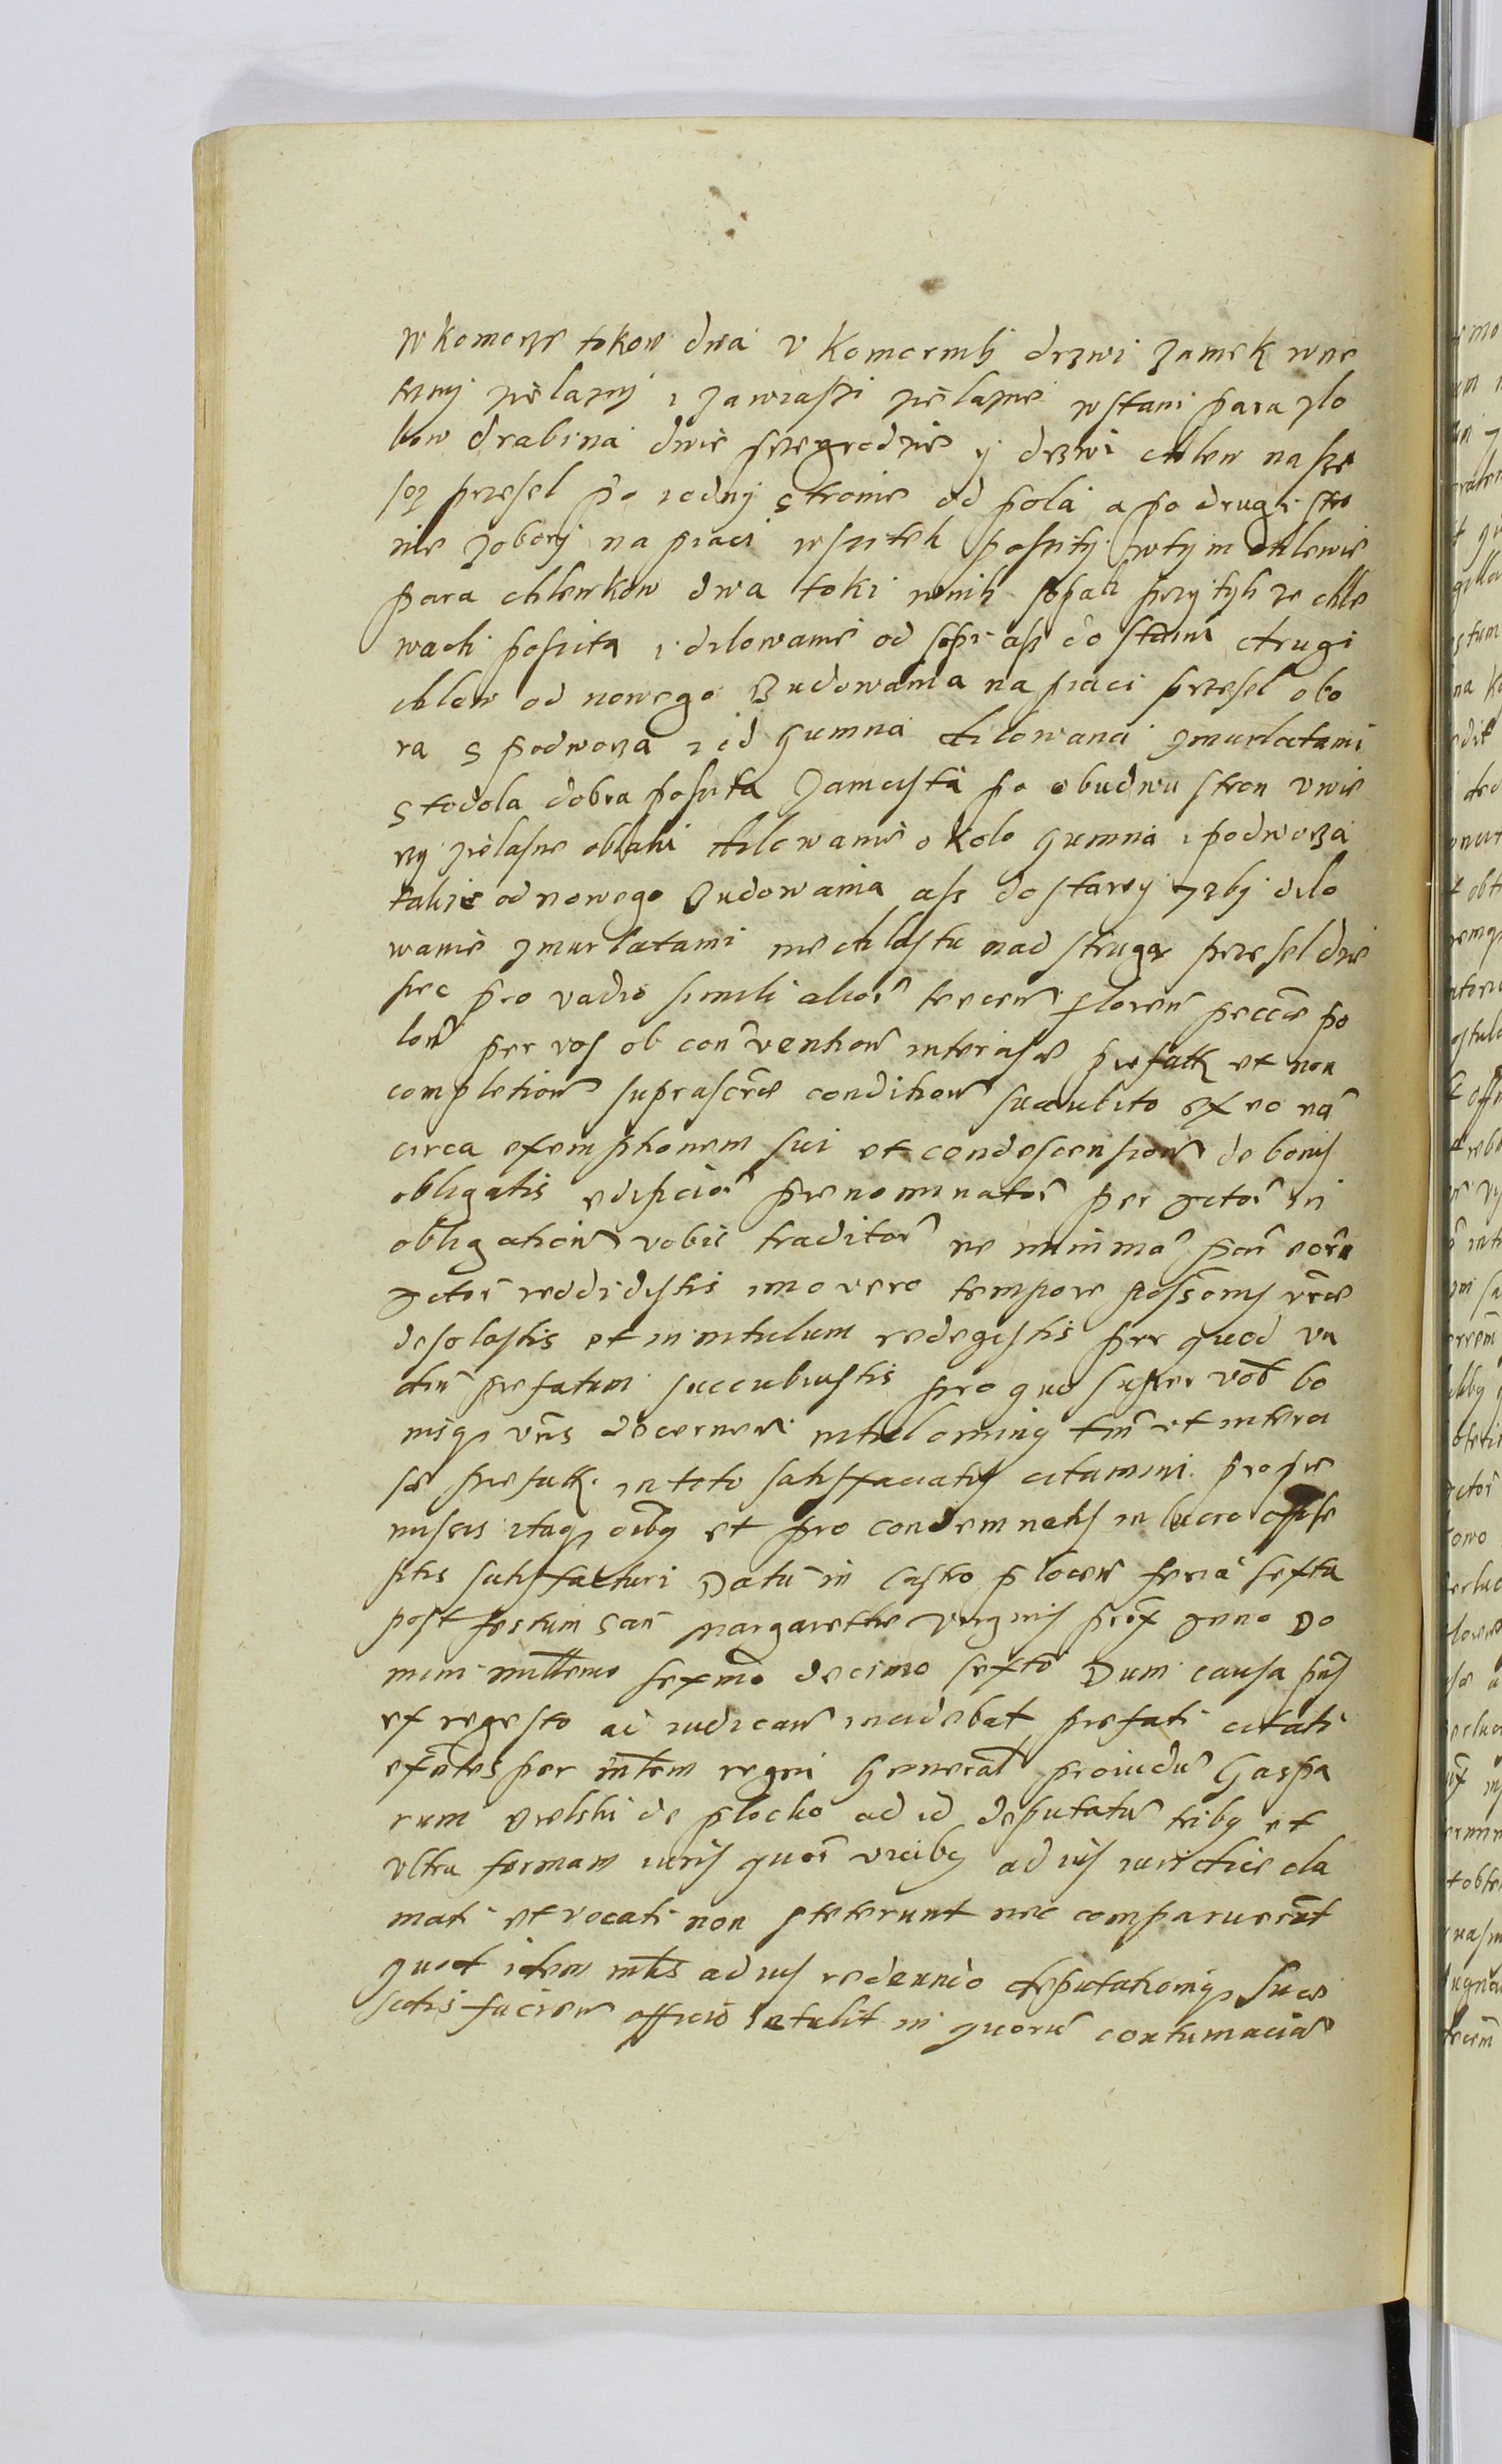 w komorze tokow dwa v komornik drzwi zamek wne
trzny zielazny i zawiaski zielazne wstani para zlo
bow drabina dwie przegrodzie y drzwi chlew na sze
przesel po iedny stronie od pola a po drugi stro
nie zobory na piaci wszitek poszity wtym chlewie
para chlewkow dwa toki wnih sopah przy tyh ze chle
wach poszita i dilowanie od sopi asz do stani drugi
chlew od nowego Budowania na piaci przesel obo
ra s podworza i od gumna dilowana zmurlatami
stodola dobra poszita zamcista po obudwu stron vwie
rzy zielasne oblaki dilowanie okolo gumna i podworza
takzie od nowego Budowania asz do stary izby dilo
wanie zmurlatami me chlostu nad struga przesel dzie
siec pro vadio simili alior trecen floren peccūe po
lon per vos ob con ventiom interesse prefatt et non
completiom suprascrte conditiom succubito ex eo nā
circa exemptionem sui et condescensiom de bonis
obligatis edificior prenominator per actor in
obligatiom vobis traditor ne minimā par eorū
actori reddidistis imo vero tempore possōnis vrē
desolastis et in nihilum redegistis per quod va
diū prefatum succubuistis pro quo super vob bo
nisq vris decerneri nihilominq tm et interes
se prefatt in toto satisfaciatis citamini pro pre
missis itaq oībq et pro condemnatis in lucro
sitis satisfacturi Datū in Castro plocen feria sexta
post festum san Margarethe virginis prox anno Do
mini millemo sexmo decimo sexto Dum causa pns
ex regesto ad iudican incidebat prefati citati
exntes per mtem regni general providū Gaspa
rum vielski de plocko ad id deputatū tribq et
vltra formam iuris quor vicibq ad ius iuridice cla
mati et vocati non steterunt nec comparuerūt
quod idem mtis ad ius redeundo deputationisq sue
satisfaciem officio retulit in quorū contumaciā